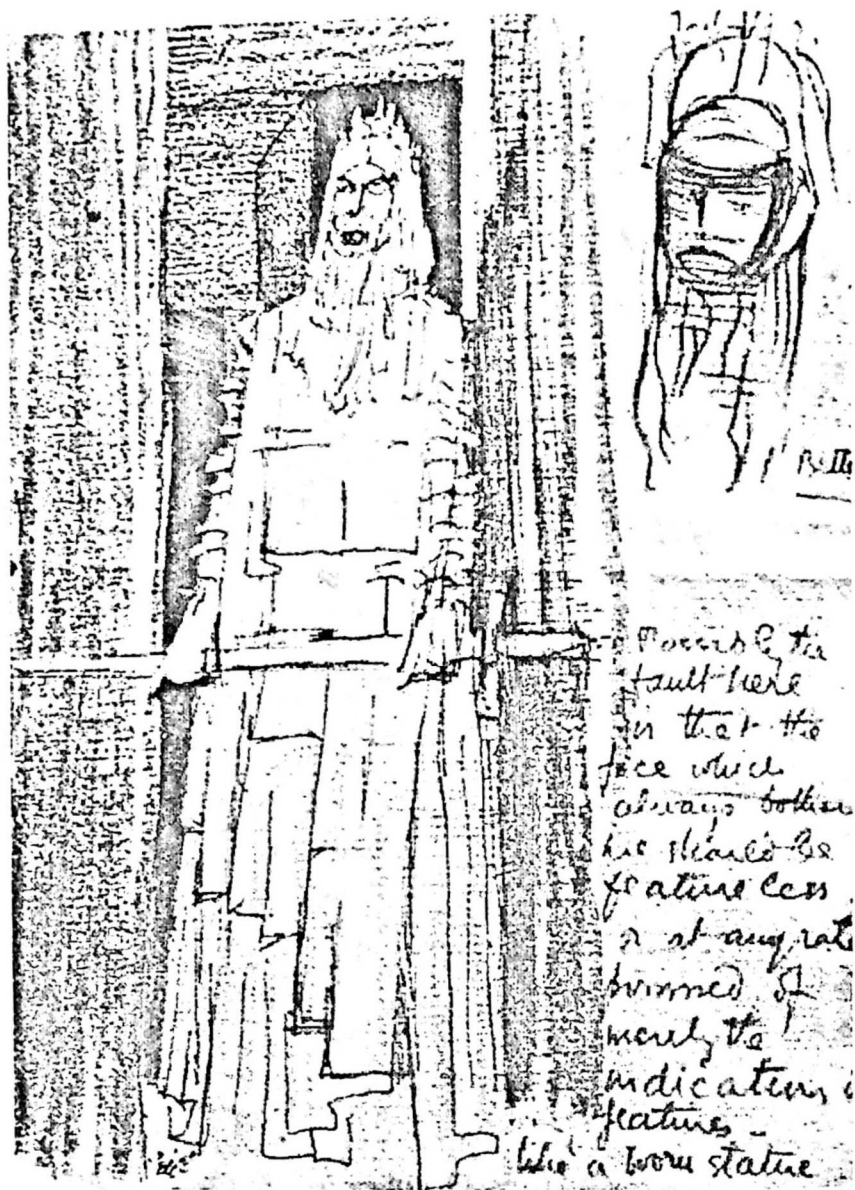 Possibly the
fault here
is that the
face which
always bother
me should be
featureless
or at any rate
formed of
merely the
indications
features –
like a worn statue